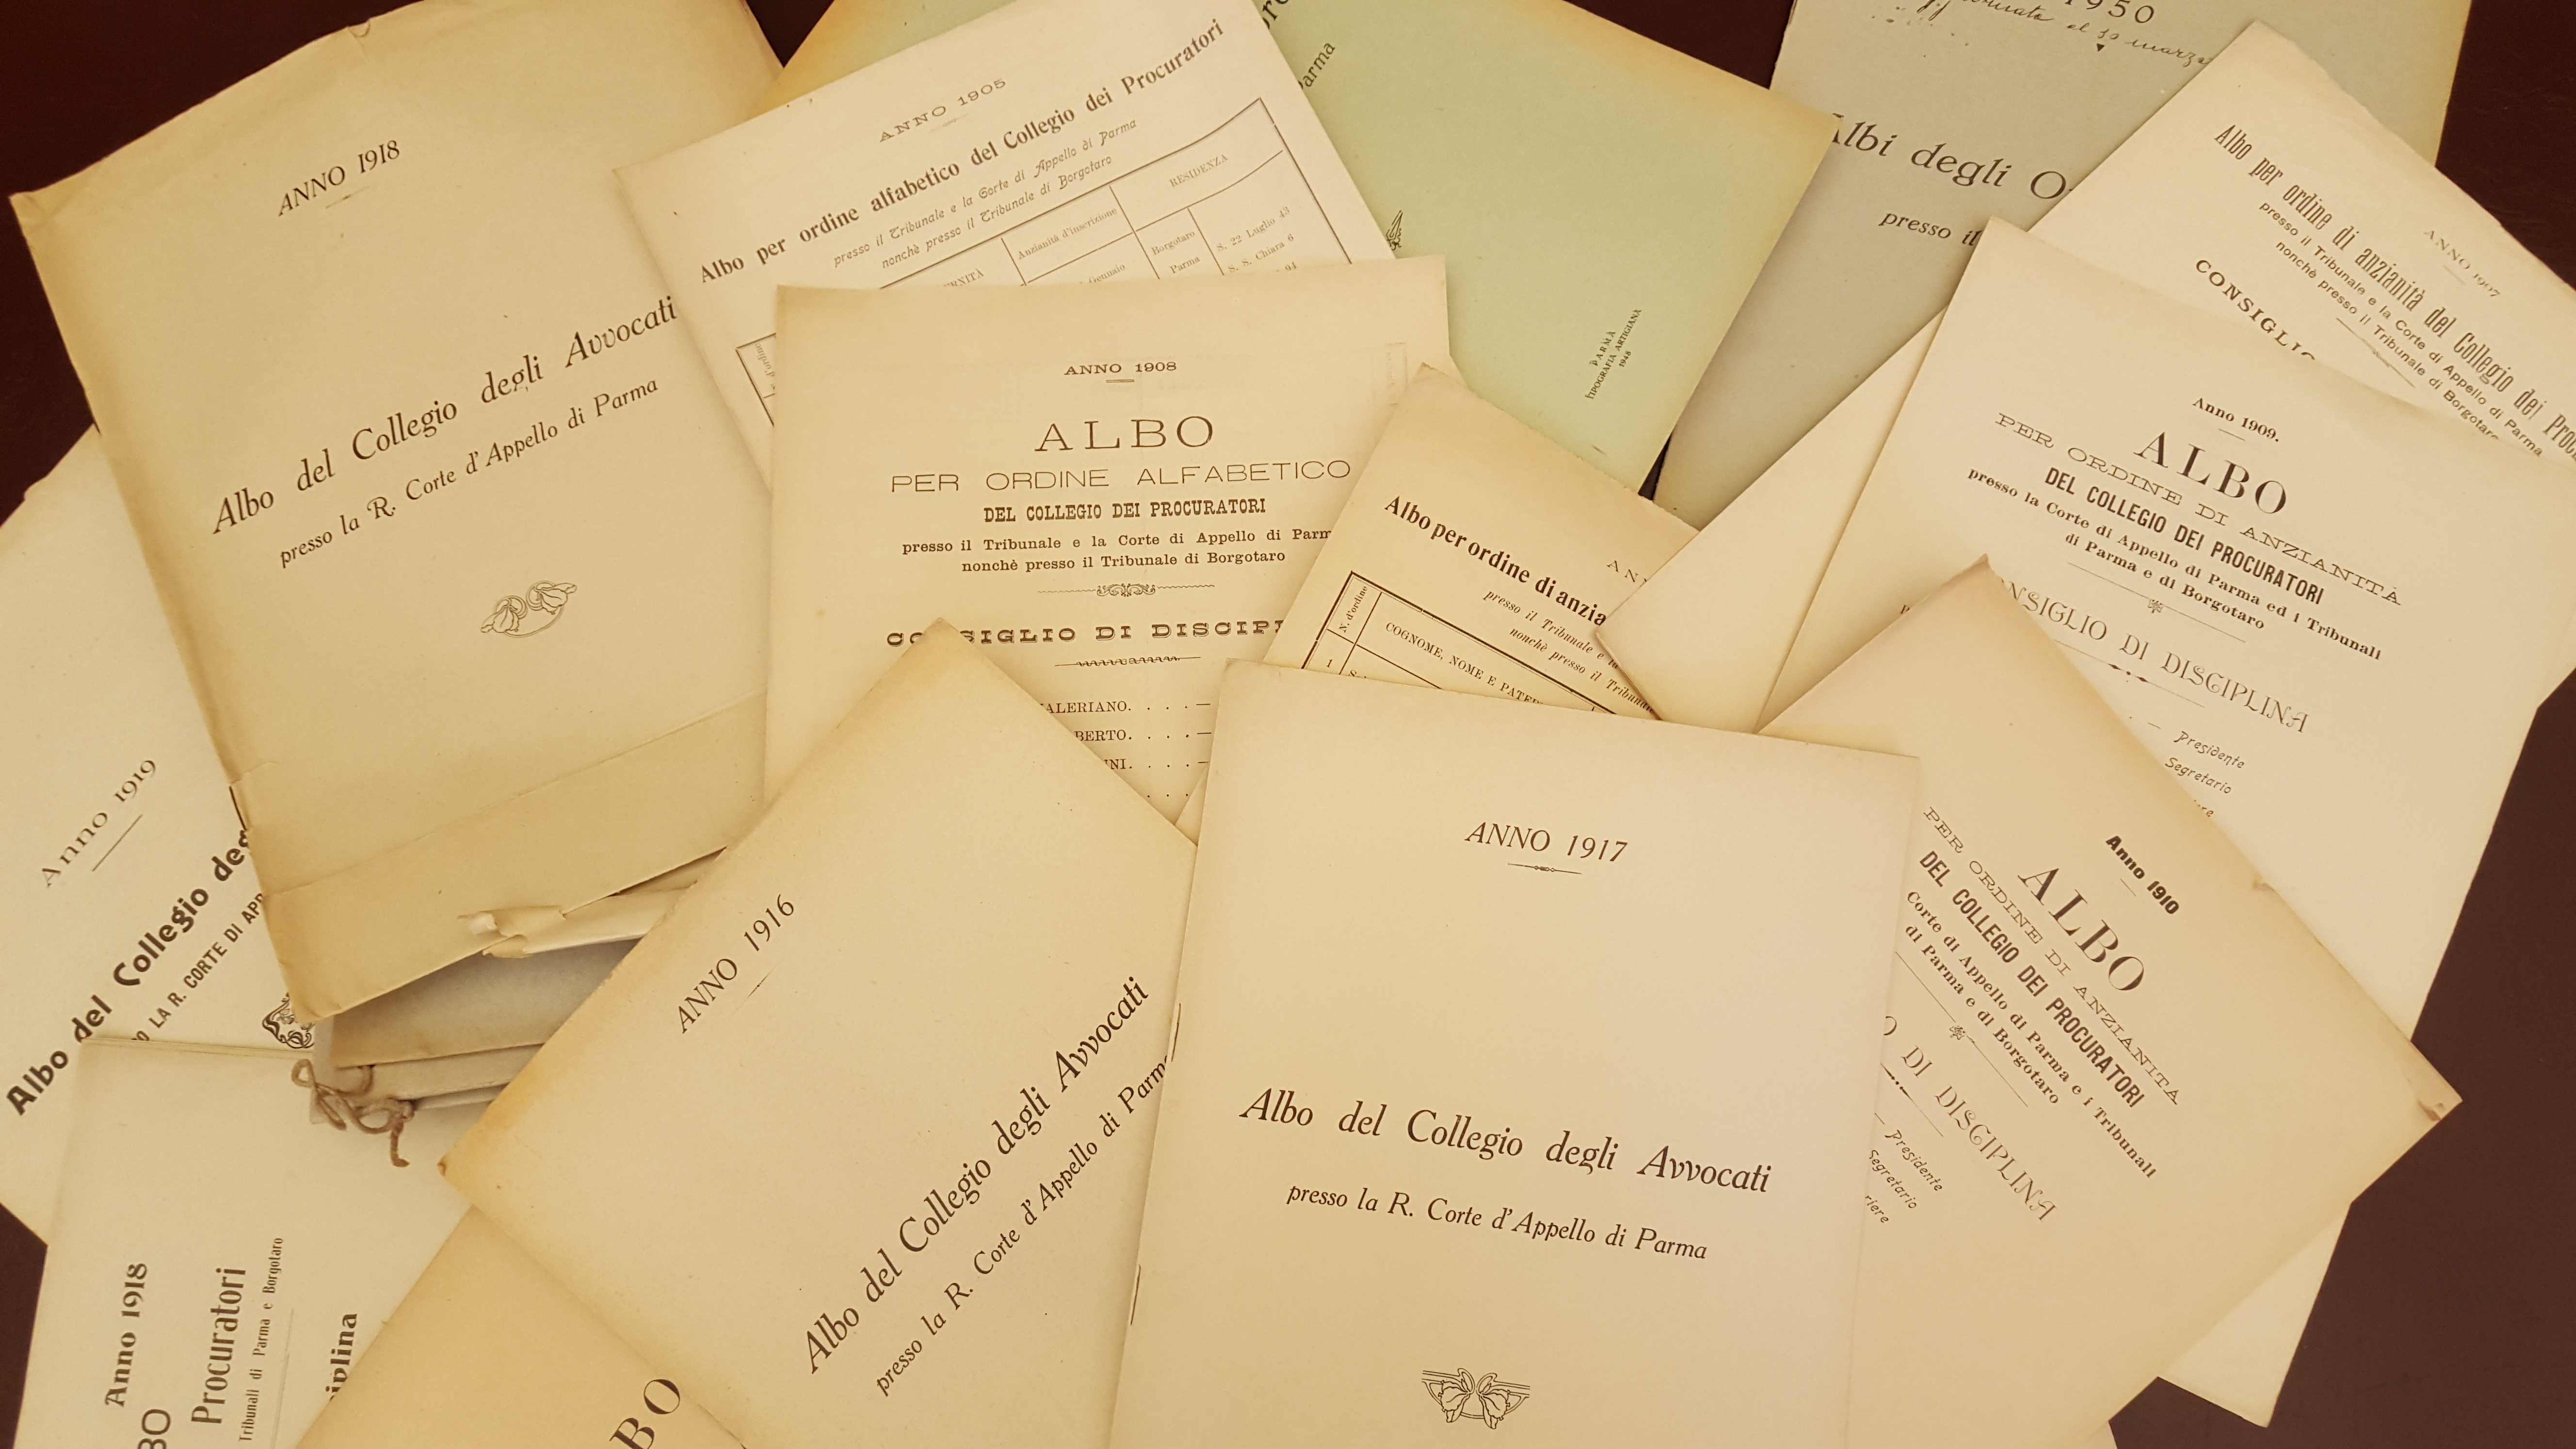 ANNO 1918
Albo del Collegio degli Avvocati
presso la R. Corte d'Appello di Parma
ANNO 1905
Albo per ordine alfabetico del Collegio dei Procuratori
presso il Tribunale e la Corte di Appello di Parma
nonchè presso il Tribunale di Borgotaro
Anzianità d'inscrizione
RESIDENZA
Gennaio
Borgotaro
Parma
S. 22 Luglio 43
S. S. Chiara 6
PARMA
TIPOGRAFIA ARTIGIANA
1948
1950
al 30 marzo
Albi degli
presso il
ANNO 1907
Albo per ordine di anzianità del Collegio dei
presso il Tribunale e la Corte di Appello di Parma
nonchè presso il Tribunale di Borgotaro
ANNO 1908
ALBO
PER ORDINE ALFABETICO
DEL COLLEGIO DEI PROCURATORI
presso il Tribunale e la Corte di Appello di Parm
nonchè presso il Tribunale di Borgotaro
DI
ALERIANO. . . . —
BERTO. . . . —
INI. . . . —
Albo per ordine di anzia
presso il Tribunale e la
nonchè presso il Tribunale
N. d'ordine
COGNOME, NOME E PATER
1
Anno 1909.
ALBO
PER ORDINE DI ANZIANITÀ
DEL COLLEGIO DEI PROCURATORI
presso la Corte di Appello di Parma ed i Tribunali
di Parma e di Borgotaro
NSIGLIO DI DISCIPLINA
— Presidente
Segretario
Anno 1910
ALBO
PER ORDINE DI ANZIANITÀ
DEL COLLEGIO DEI PROCURATORI
Corte di Appello di Parma e i Tribunali
di Parma e di Borgotaro
O DI DISCIPLINA
— Presidente
Segretario
riere
Anno 1919
Albo del Collegio deg
O LA R. CORTE DI APP
Anno 1918
BO
Procuratori
Tribunali di Parma e Borgotaro
iplina
ANNO 1916
Albo del Collegio degli Avvocati
presso la R. Corte d'Appello di Parm
BO
ANNO 1917
Albo del Collegio degli Avvocati
presso la R. Corte d'Appello di Parma